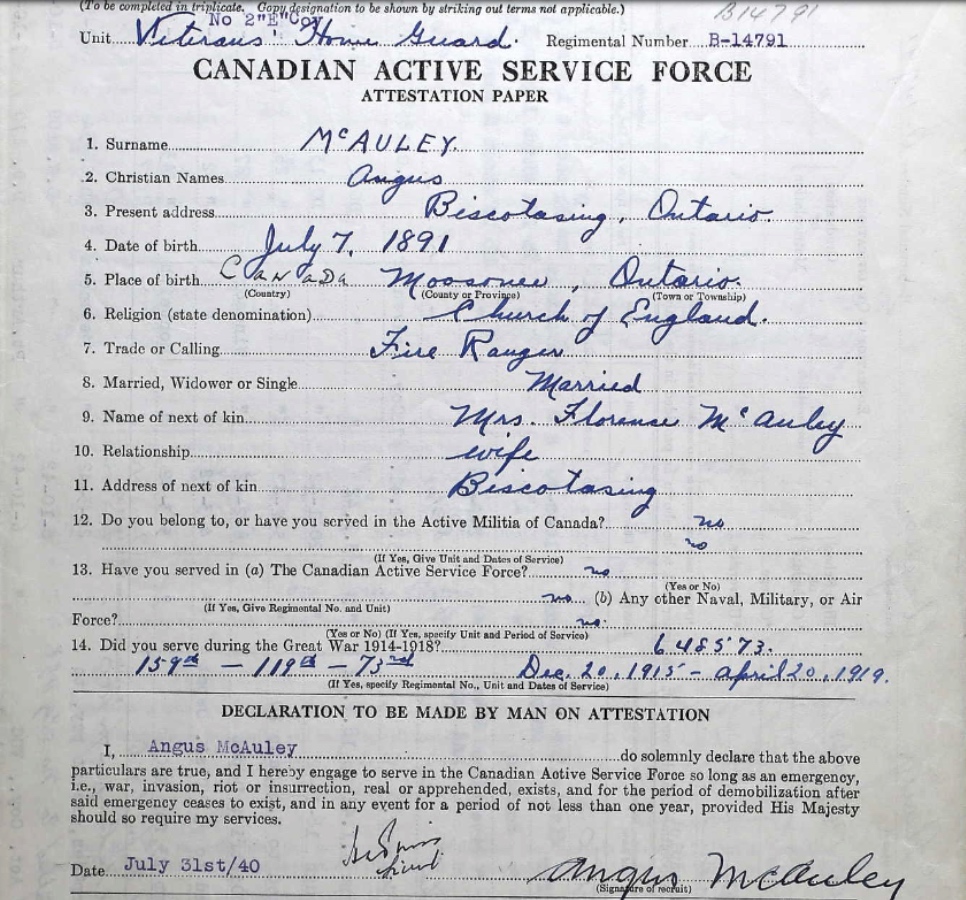 (To be completed in triplicate. Copy designation to be shown by striking out terms not applicable.)
B14791
No 2"E"Coy
Unit Veterans' Home Guard. Regimental Number B-14791
CANADIAN ACTIVE SERVICE FORCE
ATTESTATION PAPER
1. Surname McAULEY.
2. Christian Names Angus
3. Present address Biscotasing, Ontario.
4. Date of birth July 7, 1891
5. Place of birth CANADA Moosonee, Ontario.
(Country) (County or Province) (Town or Township)
6. Religion (state denomination) Church of England.
7. Trade or Calling Fire Ranger
8. Married, Widower or Single Married
9. Name of next of kin Mrs. Florence McAuley
10. Relationship wife
11. Address of next of kin Biscotasing
12. Do you belong to, or have you served in the Active Militia of Canada? no
no
(If Yes, Give Unit and Dates of Service)
13. Have you served in (a) The Canadian Active Service Force? no
(Yes or No)
no (b) Any other Naval, Military, or Air
(If Yes, Give Regimental No. and Unit)
Force? no.
(Yes or No) (If Yes, specify Unit and Period of Service)
14. Did you serve during the Great War 1914-1918? 648573.
159th - 119th - 73rd Dec. 20, 1915 - April 20, 1919.
(If Yes, specify Regimental No., Unit and Dates of Service)
DECLARATION TO BE MADE BY MAN ON ATTESTATION
I, Angus McAuley do solemnly declare that the above
particulars are true, and I hereby engage to serve in the Canadian Active Service Force so long as an emergency,
i.e., war, invasion, riot or insurrection, real or apprehended, exists, and for the period of demobilization after
said emergency ceases to exist, and in any event for a period of not less than one year, provided His Majesty
should so require my services.
Date July 31st/40 Angus McAuley
(Signature of recruit)